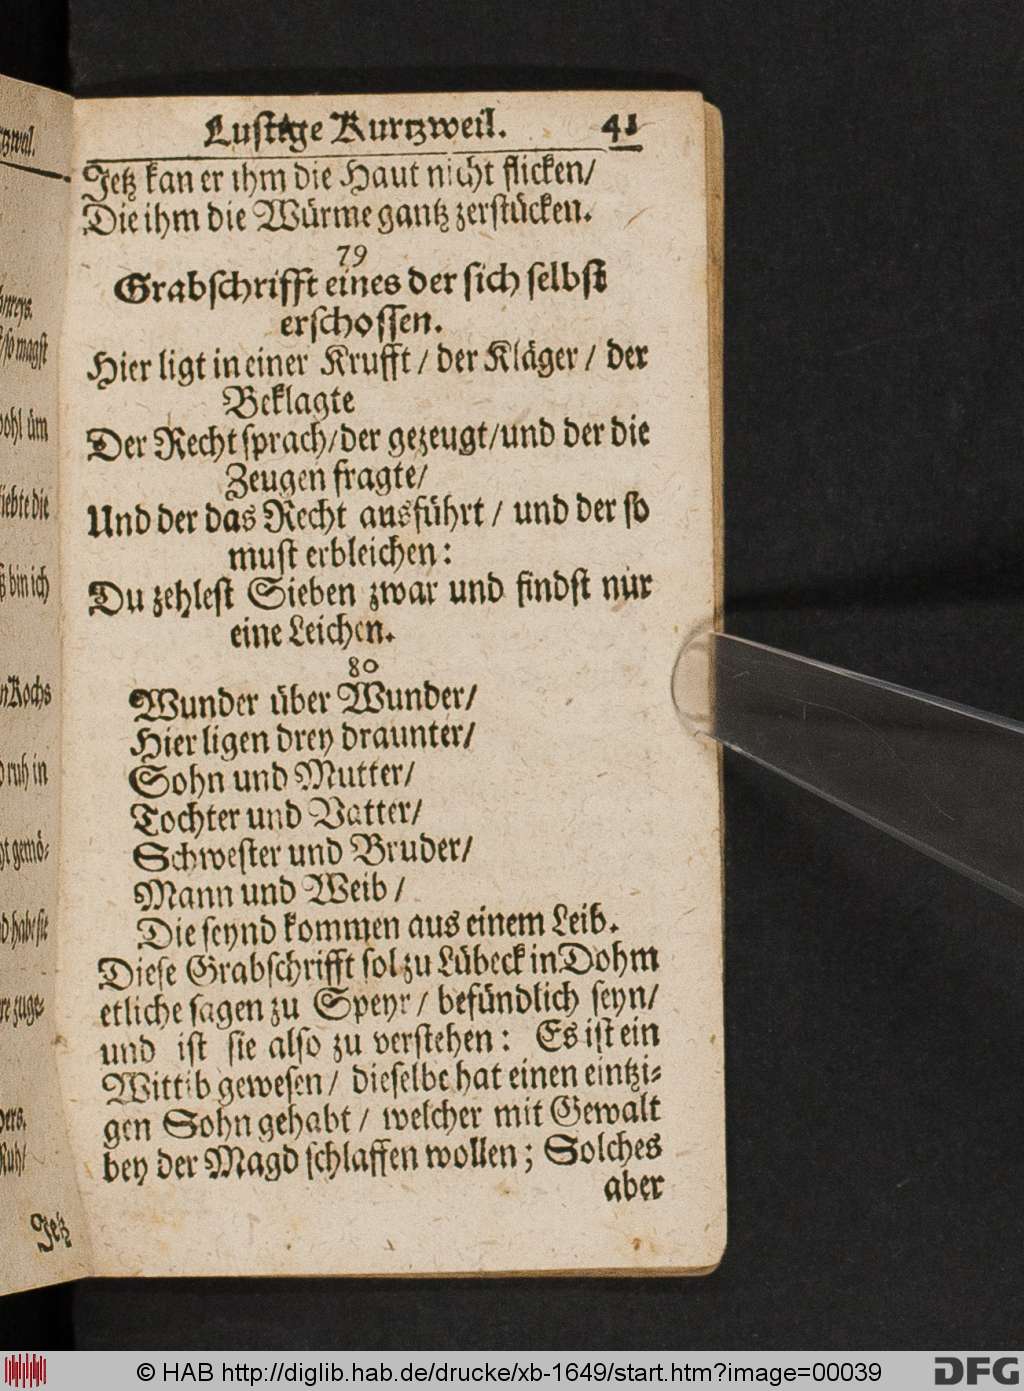 Lustige Kurtzweil. 41
Jetz kan er ihm die Haut nicht flicken/
Die ihm die Würme gantz zerstücken.
79
Grabschrifft eines der sich selbst
erschossen.
Hier ligt in einer Krufft / der Kläger / der
Beklagte
Der Recht sprach/der gezeugt/und der die
Zeugen fragte/
Und der das Recht ausführt / und der so
must erbleichen:
Du zehlest Sieben zwar und findst nur
eine Leichen.
80
Wunder über Wunder/
Hier ligen drey draunter/
Sohn und Mutter/
Tochter und Vatter/
Schwester und Bruder/
Mann und Weib /
Die seynd kommen aus einem Leib.
Diese Grabschrifft sol zu Lübeck in Dohm
etliche sagen zu Speyr / befündlich seyn/
und ist sie also zu verstehen: Es ist ein
Wittib gewesen / dieselbe hat einen eintzi-
gen Sohn gehabt / welcher mit Gewalt
bey der Magd schlaffen wollen; Solches
aber
so magst
wohl üm
liebte die
bin ich
Kochs
ruh in
gemö-
habe sie
zuge-
Ruh/
Jetz
© HAB http://diglib.hab.de/drucke/xb-1649/start.htm?image=00039
DFG